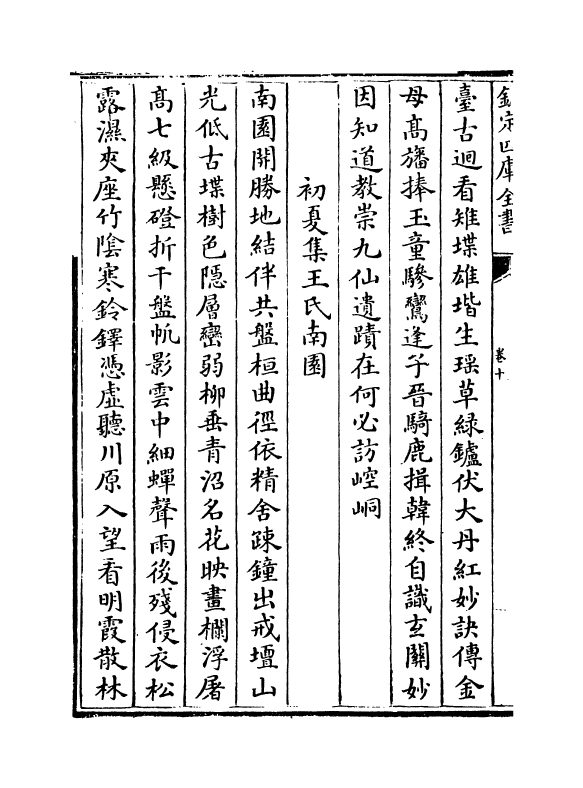 欽定四庫全書
卷十
臺古迴看雉堞雄堦生瑶草綠鑪伏大丹紅妙訣傳金
母髙旛捧玉童驂鸞逢子晉騎鹿揖韓終自識玄關妙
因知道教崇九仙遺蹟在何必訪崆峒
初夏集王氏南園
南園開勝地結伴共盤桓曲徑依精舍疎鐘出戒壇山
光低古堞樹色隠層巒弱柳垂青沼名花映畫欄浮屠
髙七級懸磴折千盤帆影雲中細蟬聲雨後殘侵衣松
露濕夾座竹隂寒鈴鐸憑虛聽川原入望看明霞散林